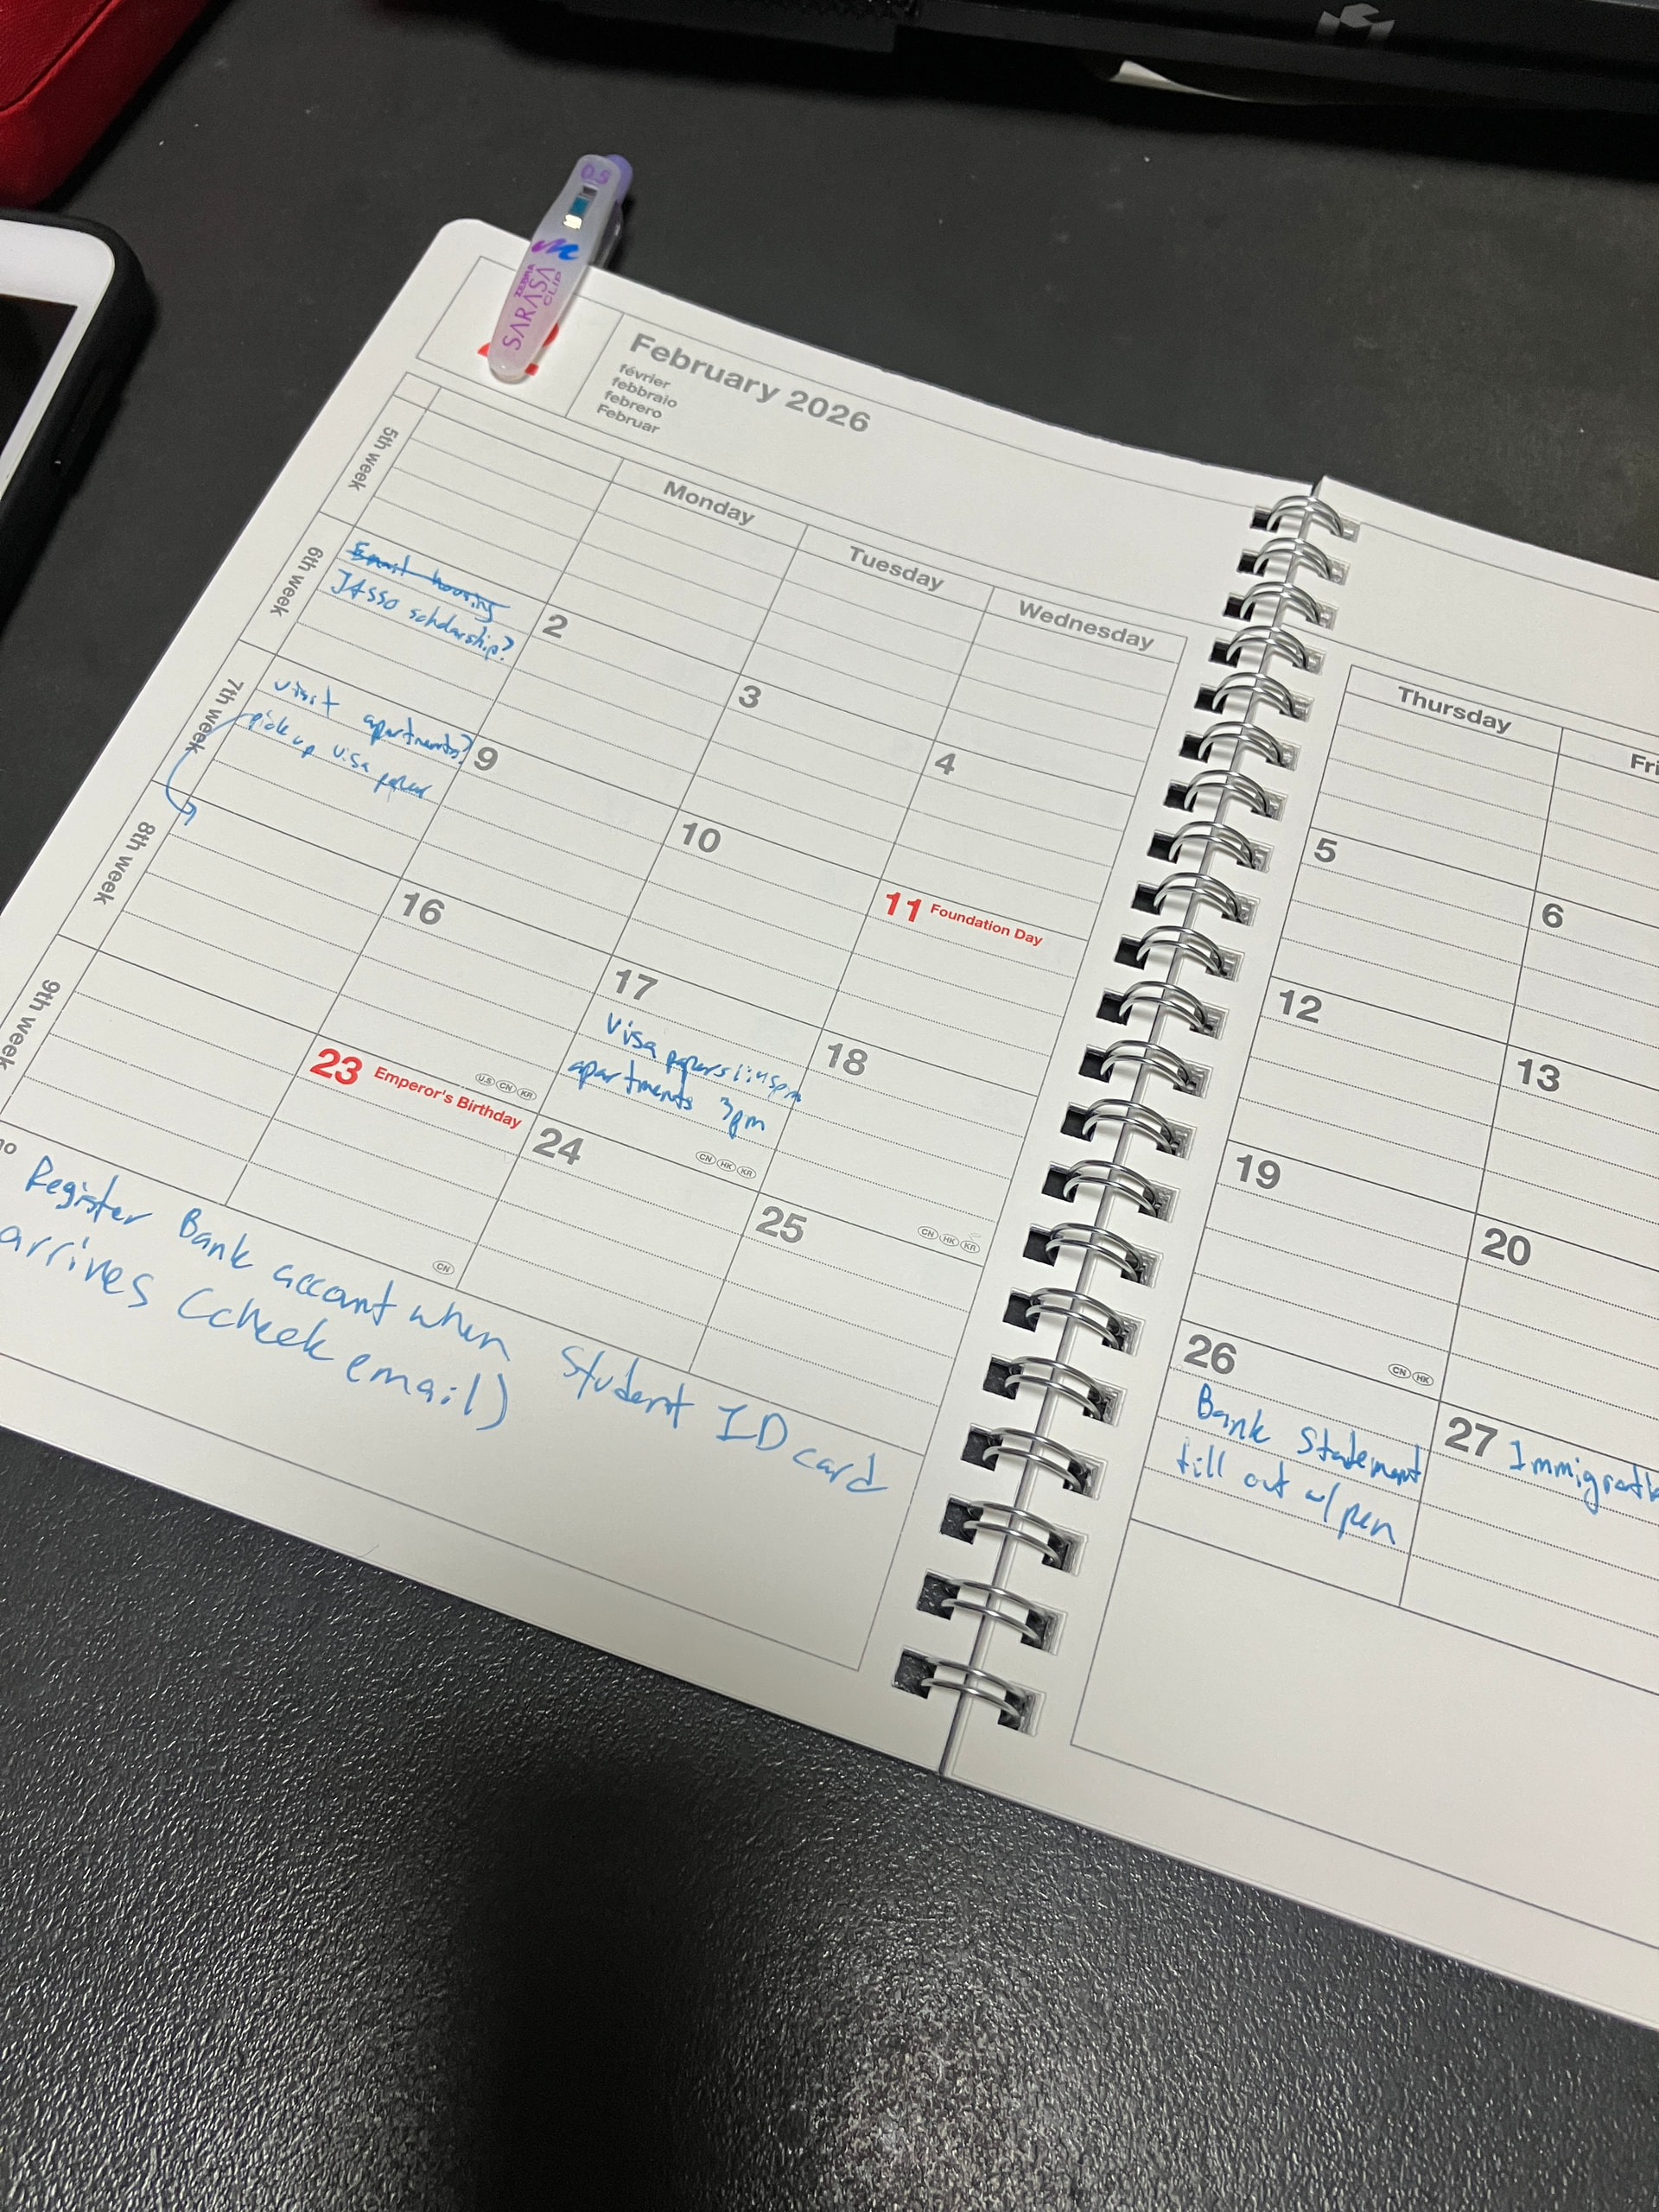 0.5
ZEBRA
SARASA
CLIP
February 2026
février
febbraio
febrero
Februar
Monday
Tuesday
Wednesday
Thursday
Fri
5th week
6th week
Email housing
JASSO scholarship?
2
3
4
5
6
7th week
visit apartments?
pick up visa papers
9
10
11 Foundation Day
12
13
8th week
16
17
Visa papers 1:45pm
apartments 3pm
18
19
20
US CN KR
CN HK KR
CN HK KR
CN HK
9th week
23 Emperor's Birthday
24
25
26
Bank Statement
fill out w/ pen
27 Immigrati
CN
Register Bank account when Student ID card
arrives (check email)